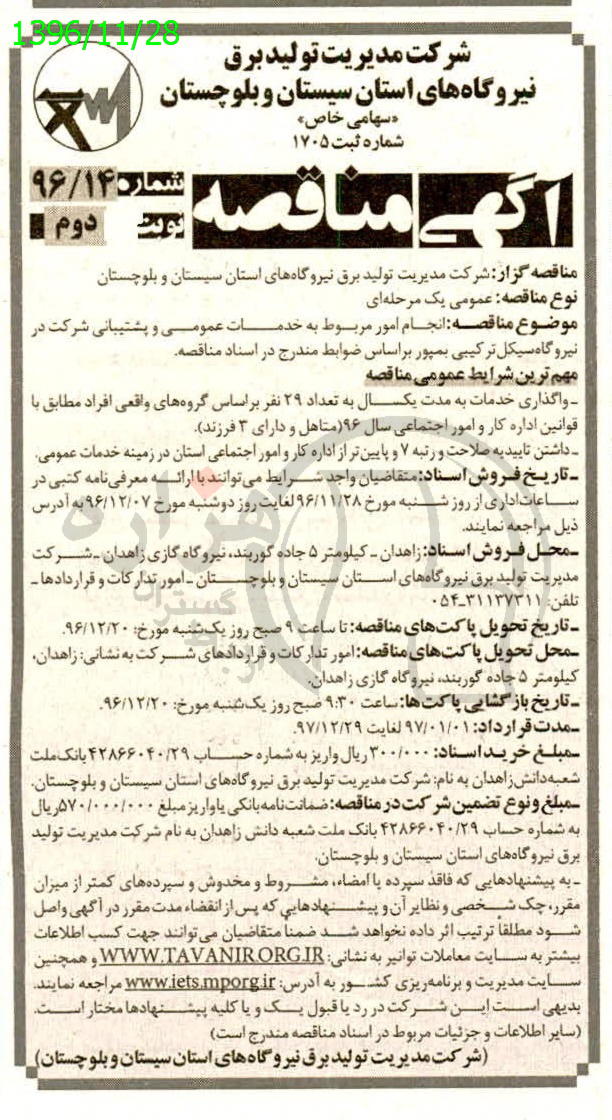 1396/11/28
شرکت مدیریت تولید برق
نیروگاه‌های استان سیستان و بلوچستان
«سهامی خاص»
شماره ثبت ۱۷۰۵
آگهی مناقصه
شماره ۹۶/۱۴
نوبت دوم
مناقصه گزار: شرکت مدیریت تولید برق نیروگاه‌های استان سیستان و بلوچستان
نوع مناقصه: عمومی یک مرحله‌ای
موضوع مناقصه: انجام امور مربوط به خدمات عمومی و پشتیبانی شرکت در
نیروگاه سیکل ترکیبی بمپور براساس ضوابط مندرج در اسناد مناقصه.
مهم ترین شرایط عمومی مناقصه
ـ واگذاری خدمات به مدت یکسال به تعداد ۲۹ نفر براساس گروه‌های واقعی افراد مطابق با
قوانین اداره کار و امور اجتماعی سال ۹۶ (متاهل و دارای ۳ فرزند).
ـ داشتن تاییدیه صلاحیت و رتبه ۷ و پایین‌تر از اداره کار و امور اجتماعی استان در زمینه خدمات عمومی.
ـ تاریخ فروش اسناد: متقاضیان واجد شرایط می‌توانند با ارائه معرفی‌نامه کتبی در
ساعات اداری از روز شنبه مورخ ۹۶/۱۱/۲۸ لغایت روز دوشنبه مورخ ۹۶/۱۲/۰۷ به آدرس
ذیل مراجعه نمایند.
ـ محل فروش اسناد: زاهدان ـ کیلومتر ۵ جاده گوربند، نیروگاه گازی زاهدان ـ شرکت
مدیریت تولید برق نیروگاه‌های استان سیستان و بلوچستان ـ امور تدارکات و قراردادها ـ
تلفن: ۳۱۱۳۷۳۱۱-۰۵۴
ـ تاریخ تحویل پاکت‌های مناقصه: تا ساعت ۹ صبح روز یکشنبه مورخ: ۹۶/۱۲/۲۰.
ـ محل تحویل پاکت‌های مناقصه: امور تدارکات و قراردادهای شرکت به نشانی: زاهدان،
کیلومتر ۵ جاده گوربند، نیروگاه گازی زاهدان.
ـ تاریخ بازگشایی پاکت‌ها: ساعت ۹:۳۰ صبح روز یک‌شنبه مورخ: ۹۶/۱۲/۲۰.
ـ مدت قرارداد: ۹۷/۰۱/۰۱ لغایت ۹۷/۱۲/۲۹.
ـ مبلغ خرید اسناد: ۳۰۰/۰۰۰ ریال واریز به شماره حساب ۴۲۸۶۶۰۴۰/۲۹ بانک ملت
شعبه دانش زاهدان به نام: شرکت مدیریت تولید برق نیروگاه‌های استان سیستان و بلوچستان.
ـ مبلغ و نوع تضمین شرکت در مناقصه: ضمانت‌نامه بانکی یا واریز مبلغ ۵۷۰/۰۰۰/۰۰۰ ریال
به شماره حساب ۴۲۸۶۶۰۴۰/۲۹ بانک ملت شعبه دانش زاهدان به نام شرکت مدیریت تولید
برق نیروگاه‌های استان سیستان و بلوچستان.
ـ به پیشنهادهایی که فاقد سپرده یا امضاء، مشروط و مخدوش و سپرده‌های کمتر از میزان
مقرر، چک شخصی و نظایر آن و پیشنهادهایی که پس از انقضاء مدت مقرر در آگهی واصل
شود مطلقاً ترتیب اثر داده نخواهد شد ضمناً متقاضیان می‌توانند جهت کسب اطلاعات
بیشتر به سایت معاملات توانیر به نشانی: WWW.TAVANIR.ORG.IR و همچنین
سایت مدیریت و برنامه‌ریزی کشور به آدرس: www.iets.mporg.ir مراجعه نمایند.
بدیهی است این شرکت در رد یا قبول یک و یا کلیه پیشنهادها مختار است.
(سایر اطلاعات و جزئیات مربوط در اسناد مناقصه مندرج است)
(شرکت مدیریت تولید برق نیروگاه‌های استان سیستان و بلوچستان)
هزاره
گستران